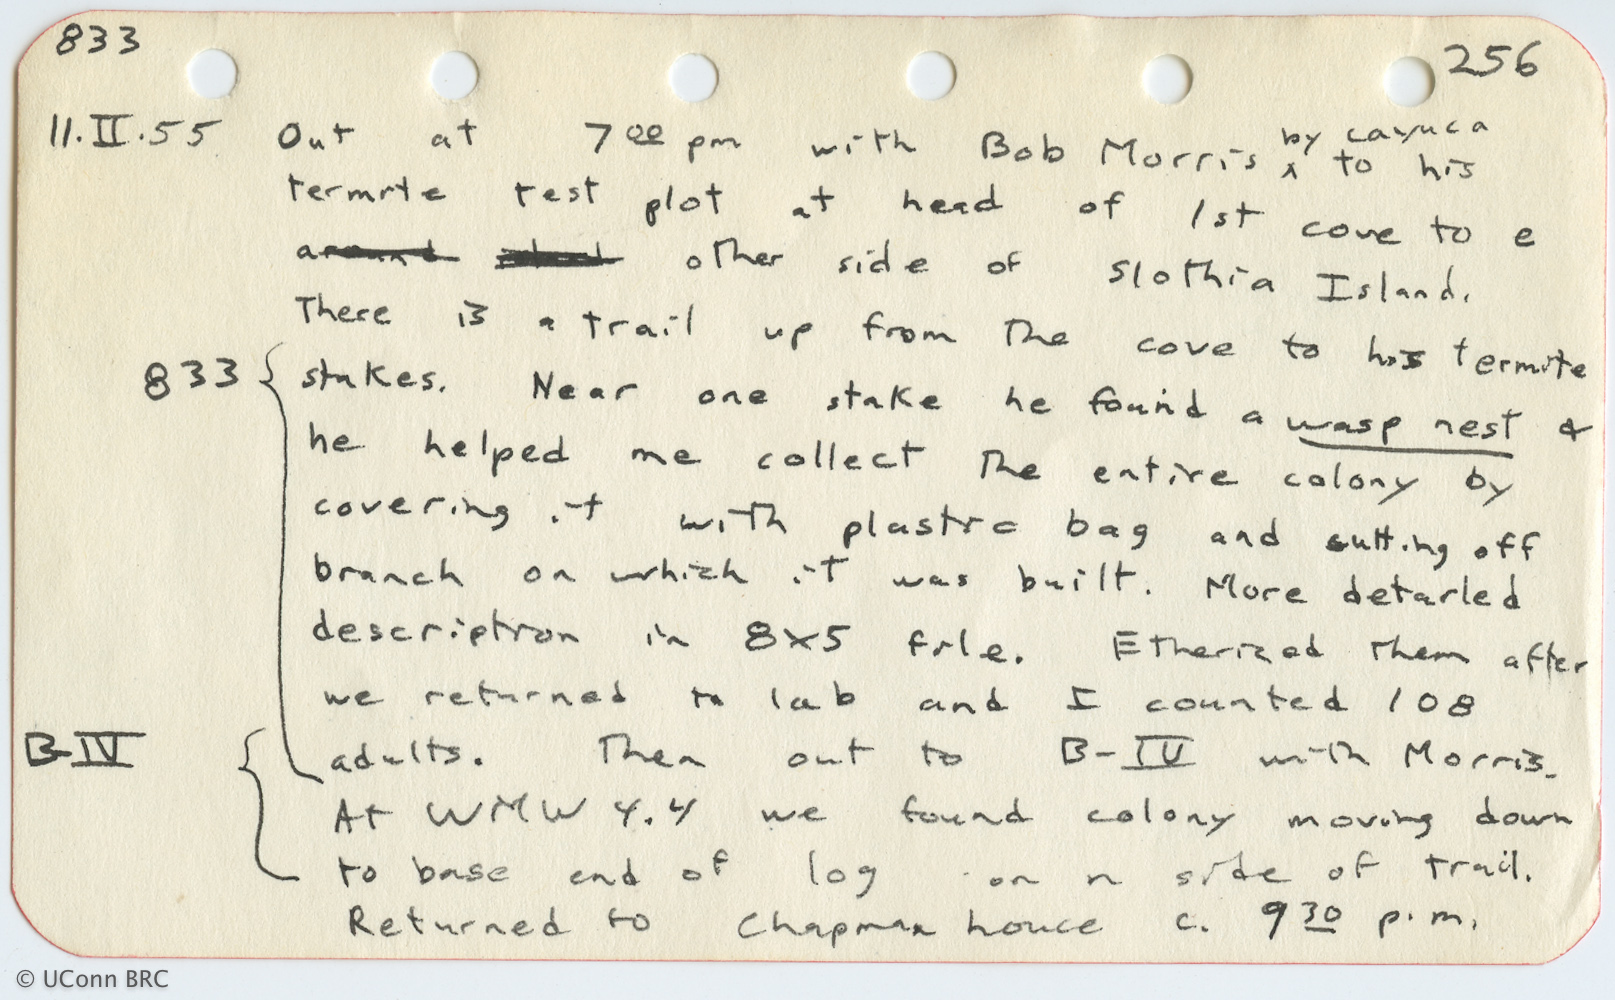 833
256
11.II.55 Out at 7 00 pm with Bob Morris by cayuca to his
termite test plot at head of 1st cove to e
around other side of Slothia Island.
There is a trail up from the cove to his termite
833 { stakes. Near one stake he found a wasp nest &
he helped me collect the entire colony by
covering it with plastic bag and cutting off
branch on which it was built. More detailed
description in 8x5 file. Etherized them after
we returned to lab and I counted 108
B-IV { adults. Then out to B-IV with Morris.
At WMW 4.4 we found colony moving down
to base end of log on n side of trail.
Returned to Chapman house c. 9 30 p.m.
© UConn BRC